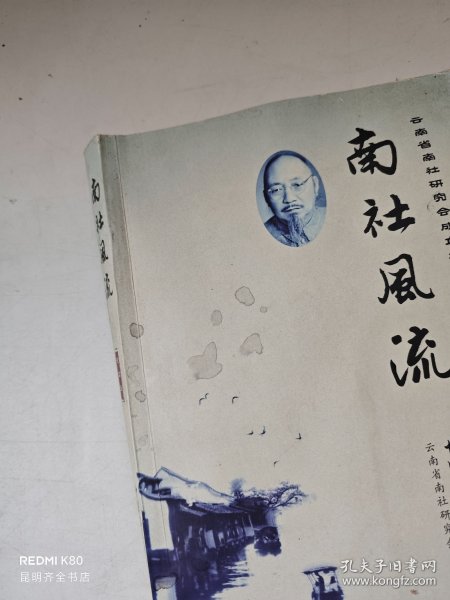 南社風流
云南省南社研究会成立
南社風流
云南省南社研究会
REDMI K80
昆明齐全书店
孔夫子旧书网
www.kongfz.com